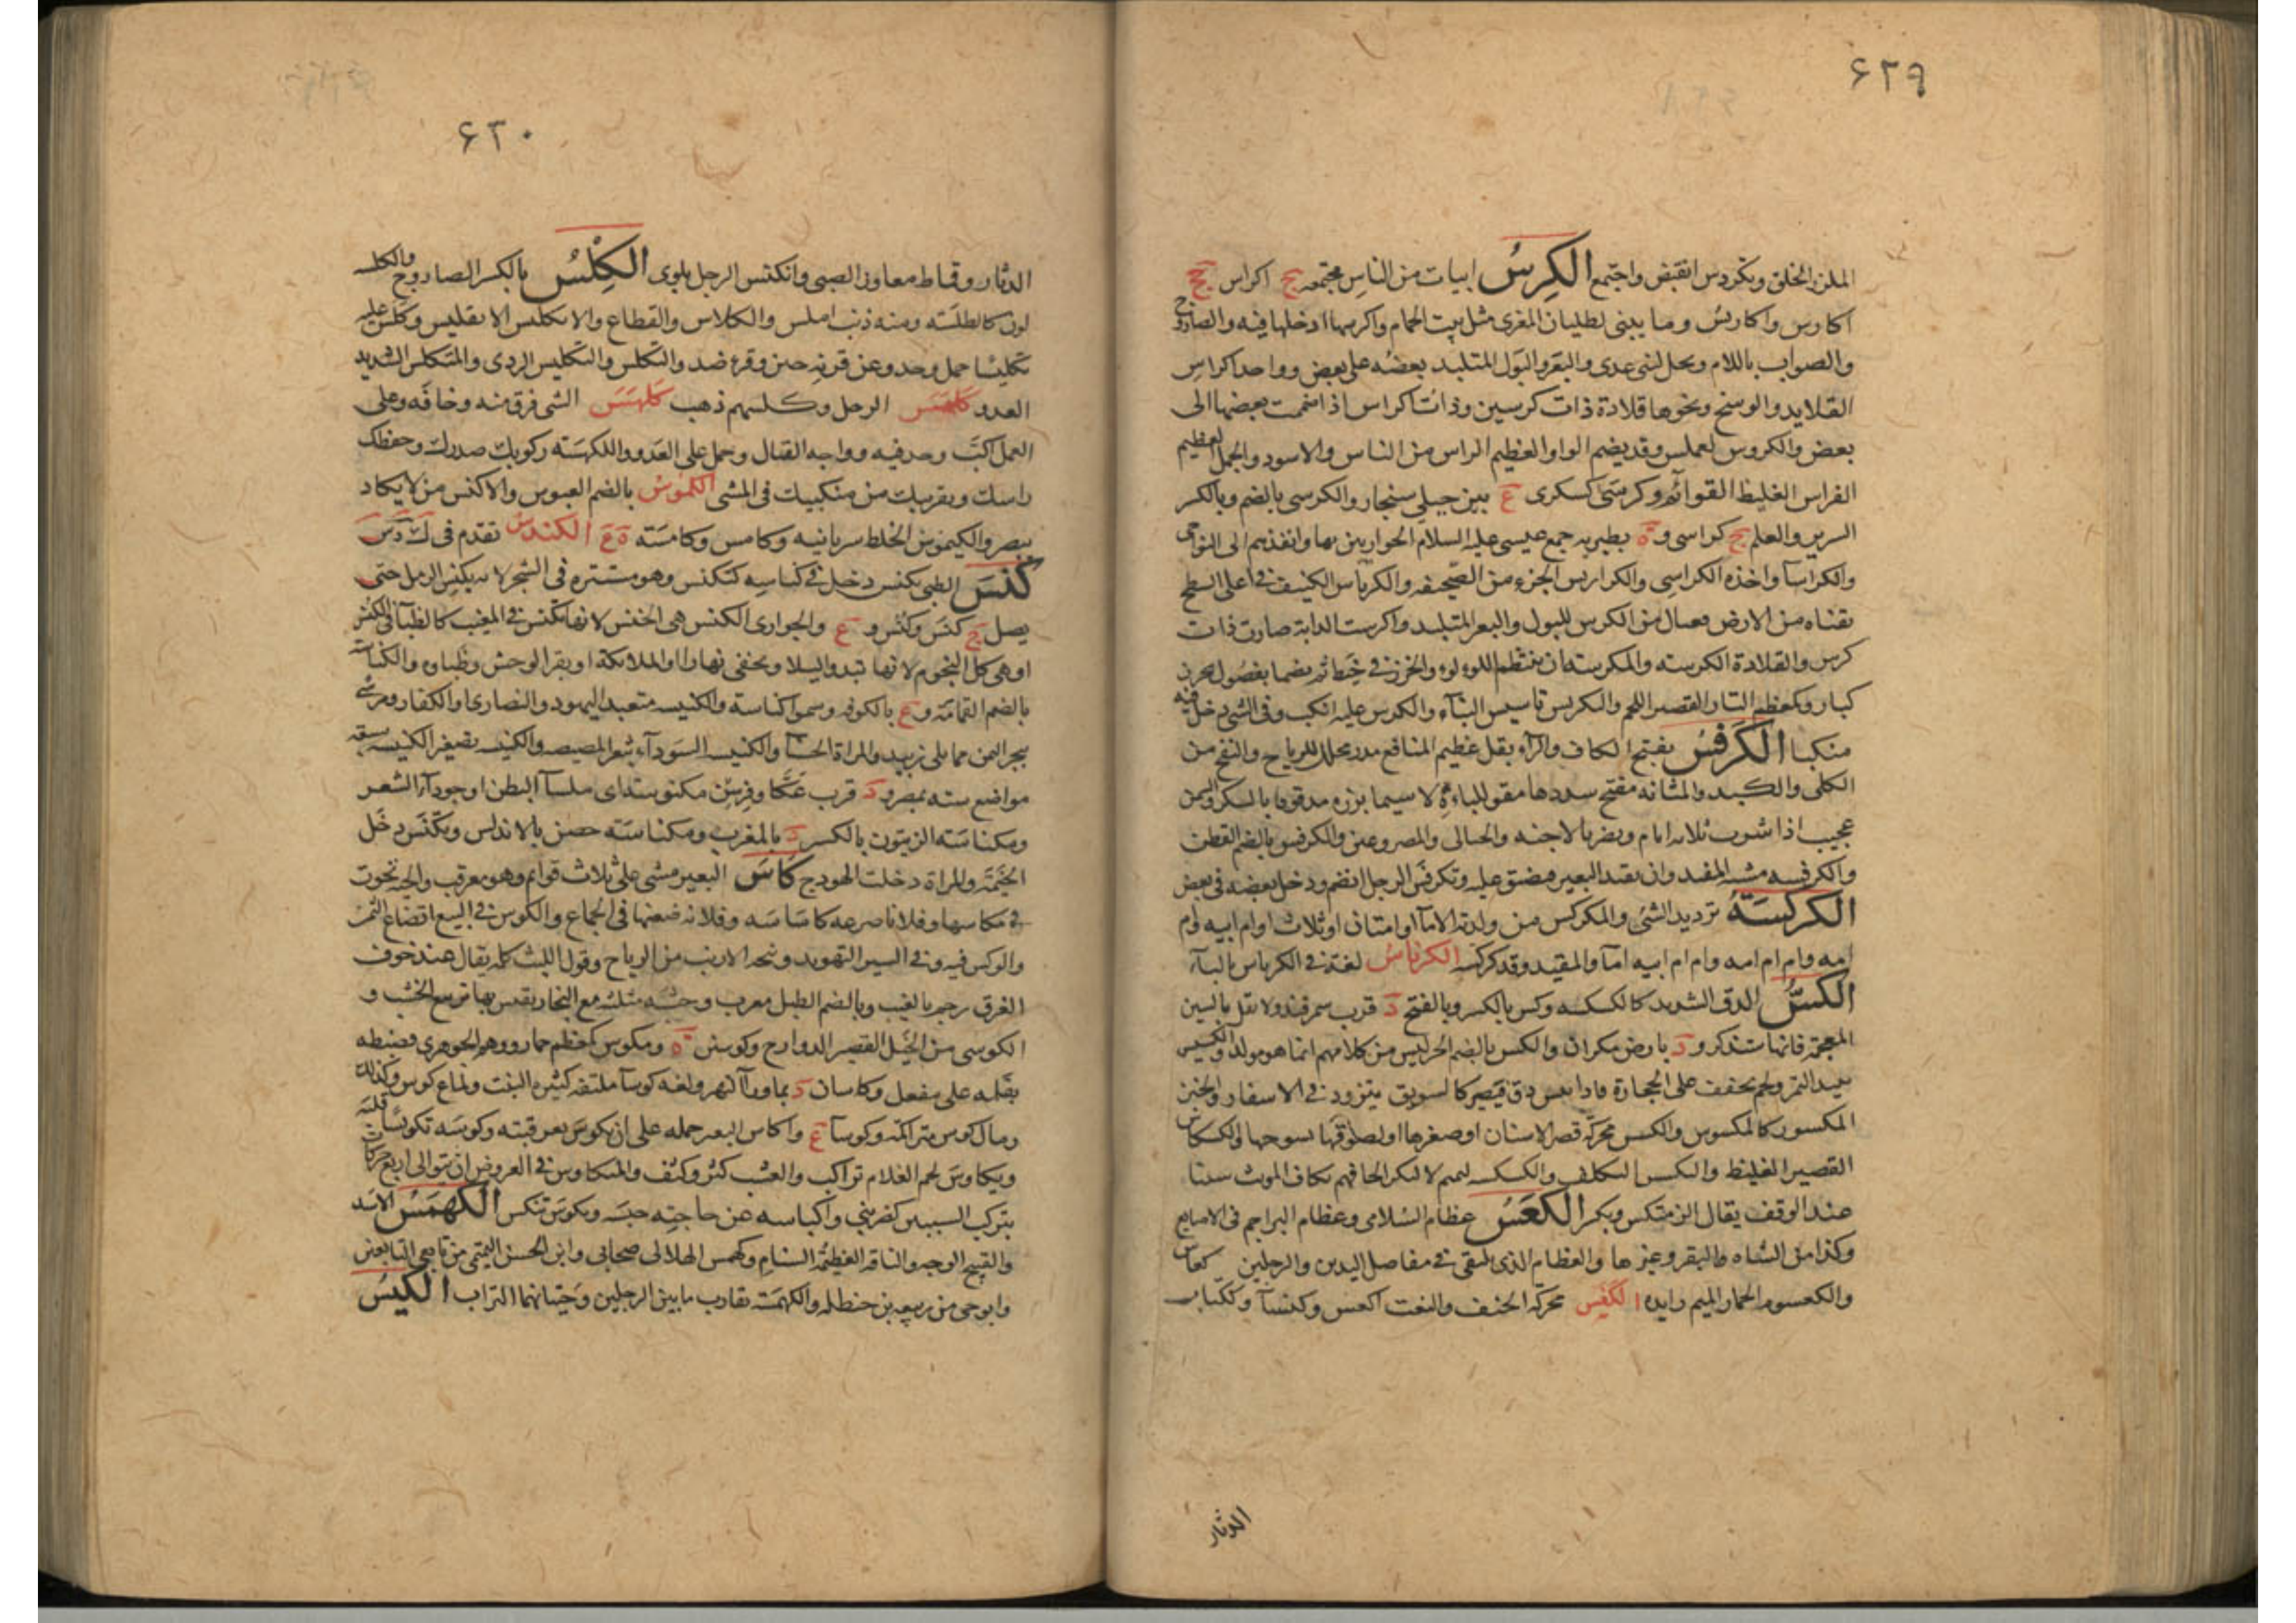 ۶۲۹
الملزز الخلق وتكردس انقبض واجتمع الكِرسُ ابيات من الناس مجتمعه ج اكراس جج
اكارس واكاريس وما يبنى لطليان المعزى مثل بيت الحمام واكرسها ادخلها فيه والصاروج
والصواب باللام ونخل لبنى عدى والبعر والبول المتلبد بعضه على بعض وواحد اكراس
القلايد والوسنح ونحوها قلادة ذات كرسين وذات اكراس اذا ضممت بعضها الى
بعض والكروس لعملس وقد يضم الواو العظيم الراس من الناس والاسود والجمل العظيم
الفراس الغليظ القوائم وكرسى كسكرى ع بين جبلى سنجار والكرسى بالضم وبالكسر
السرير والعلم ج كراسى و ة بطبريه جمع عيسى عليه السلام الحواريين بها وانفذهم الى النواحى
والكراسة واخذه الكراسى والكراريس الجزء من الصحيفه والكرياس الكنيف فى اعلى السطح
بقناه من الارض فعيال من الكرس للبول والبعر المتلبد واكرست الدابة صارت ذات
كرس والقلادة الكرسته والمكرسته ان ينظم اللولو والخرز فى خيط ثم يضما بفصول بخرز
كبار وكمعظم التار القصير اللحم والتكريس تاسيس البناء والكرس عليه انكب وفى الشى دخل فيه
منكبا الكَرَفْسُ بفتح الكاف والراء بقل عظيم المنافع مدر محلل للرياح والنفخ من
الكلى والكبد والمثانه مفتح سددها مقو للباءة لا سيما بزره مدقوقا بالسكر والسمن
عجيب اذا شرب ثلاثه ايام ويضر بالاجنه والحبالى والمصروعين والكرفس بالضم القطن
والكرفسه مشيه المقيد وان يقيد البعير فيضيق عليه وتكرفس الرجل انضم ودخل بعضه فى بعض
الكركسَة ترديد الشى والمكركس من ولدته الاما او امتان او ثلاث او ام ابيه وام
امه وام ام امه وام ام ابيه اما والمقيد وقد كركسه الكرناسُ لغة فى الكرباس بالباء
الكسُّ الدق الشديد كالكسكسه وكس بالكسر وبالفتح د قرب سمرقند ولا تقل بالشين
المعجمة فانها ستذكر و د بارض مكران والكس بالضم الحر ليس من كلامهم انما هو مولد والكسيس
نبيذ التمر ولحم يجفف على الحجارة فاذا يبس دق فيصير كالسويق يتزود فى الاسفار والخبز
المكسور كالمكسوس والكسس محركة قصر الاسنان او صغرها او لصوقها بسنوخها والكسكاس
القصير الغليظ والتكسس التكلف والكسكسه لتميم لا لبكر الحاقهم بكاف المونث سينا
عند الوقف يقال اكرمتكس وبكس الكعْسُ عظام السلامى وعظام البراجم فى الاصابع
وكذا من الشاه والبقر وغيرها والعظام الذى تلتقى فى مفاصل اليدين والرجلين كعاس
والكعسوم الحمار الميم زايده الكَفَس محركة الحنف والنعت اكفس وكفسا وككتاب
الدثار
۶۳۰
الدثار وقماط معاوز الصبى وانكفس الرجل تلوى الكِلْسُ بالكسر الصاروج والكلسه
لون كالطلسه ومنه ذئب املس والكلاس والقطاع والانكليس الانقليس وكلس عليه
تكليسا حمل وجد وعن قرنه جبن وفر ضد والتكلس والتكليس الردى والمتكلس الشديد
العدو كلهس الرجل وكلسهم ذهب كلهسَ الشى فرق منه وخافه وعلى
العمل اكب وجد فيه وواجه القتال وحمل على العدو والكلهسة ركوبك صدرك وحفظك
راسك وتقريبك من منكبيك فى المشى الكموس بالضم العبوس والاكمس من لا يكاد
يبصر والكيموس الخلط سريانيه وكامس وكامسة ة ع الكندس تقدم فى ك د س
كَنَسَ الظبى يكنس دخل فى كناسه كتكنس وهو مستتره فى الشجر لانه يكنس الرمل حتى
يصل ج كنس وكنس و ع والجوارى الكنس هى الخنس لانها تكنس فى المغيب كالظبا فى الكنس
او هى كل النجوم لانها تبدو ليلا وتخفى نهارا او الملائكة او بقر الوحش وظباوه والكناسه
بالضم القمامة و ع بالكوفه وسموا كناسة والكنيسه متعبد اليهود والنصارى او الكفار ومرسى
ببحر اليمن مما يلى زبيد والمراة الحسنا والكنيسه السوداء بثغر المصيصه والكنيسه تصغير الكنيسه بسبعه
مواضع سته بمصر و د قرب عكا وفرسن مكنوسة اى ملسا البطن او جرداء الشعر
ومكناسة الزيتون بالكسر د بالمغرب ومكناسة حصن بالاندلس وتكنس دخل
الخيمة والمراة دخلت الهودج كاسَ البعير مشى على ثلاث قوايم وهو معرقب والحيه تحوت
فى مكاسها وفلانا صرعه كاساسه وفلانه طعنها فى الجماع والكوس فى البيع اتضاع الثمن
والوكس فيه وفى السير التهويد ونيحه الازيب من الرياح وقول الليث كلمه يقال عند خوف
الغرق رجم بالغيب وبالضم الطبل معرب وخشبه مثلثه مع النجار يقيس بها تربيع الخشب و
الكوسى من الخيل القصير الدوارج وكوسين ة ومكوس كمعظم حمار ووهم الجوهرى فضبطه
بقلمه على مفعل وكاسان د بماورا النهر ولمعه كوسا ملتفه كثيره النبت ولماع كوس وكذلك
رمال كوس متراكمه وكوسا ع واكاس البعير حمله على ان يكوس بعرقبته وكوسه تكويسا قلبه
وتكاوس لحم الغلام تراكب والعشب كثر وكثف والمتكاوس فى العروض ان يتوالى اربع حركات
بتركب السببين كضربنى واكياسه عن حاجته حبسه وتكوس تنكس الكهمَسُ الاسد
والقبيح الوجه والناقه العظيمة السنام وكهمس الهلالى صحابى وابن الحسن التميمى من تابعى التابعين
وابو حى من ربيعه بن حنظله والكهمسه تقارب مابين الرجلين وحثيانهما التراب الكيسُ